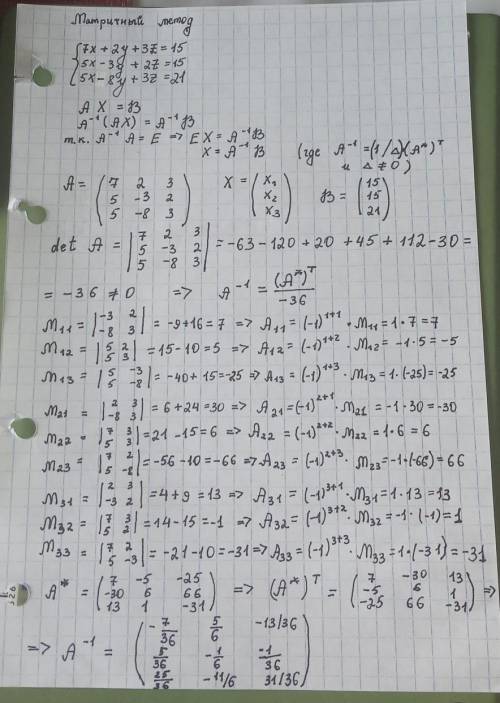 Матричный метод
{7x + 2y + 3z = 15
5x - 3y + 2z = 15
5x - 8y + 3z = 21
A X = B
A⁻¹(AX) = A⁻¹B
т.к. A⁻¹ A = E => E X = A⁻¹B
X = A⁻¹ B (где A⁻¹ = (1/Δ)(A*)ᵀ и Δ ≠ 0)
A = (7 2 3 X = (x₁ B = (15
5 -3 2 x₂ 15
5 -8 3) x₃) 21)
det A = |7 2 3
5 -3 2
5 -8 3| = -63 - 120 + 20 + 45 + 112 - 30 =
= -36 ≠ 0 => A⁻¹ = (A*)ᵀ / -36
M11 = |-3 2
-8 3| = -9 + 16 = 7 => A11 = (-1)¹⁺¹ · M11 = 1 · 7 = 7
M12 = |5 2
5 3| = 15 - 10 = 5 => A12 = (-1)¹⁺² · M12 = -1 · 5 = -5
M13 = |5 -3
5 -8| = -40 + 15 = -25 => A13 = (-1)¹⁺³ · M13 = 1 · (-25) = -25
M21 = |2 3
-8 3| = 6 + 24 = 30 => A21 = (-1)²⁺¹ · M21 = -1 · 30 = -30
M22 = |7 3
5 3| = 21 - 15 = 6 => A22 = (-1)²⁺² · M22 = 1 · 6 = 6
M23 = |7 2
5 -8| = -56 - 10 = -66 => A23 = (-1)²⁺³ · M23 = -1 · (-66) = 66
M31 = |2 3
-3 2| = 4 + 9 = 13 => A31 = (-1)³⁺¹ · M31 = 1 · 13 = 13
M32 = |7 3
5 2| = 14 - 15 = -1 => A32 = (-1)³⁺² · M32 = -1 · (-1) = 1
M33 = |7 2
5 -3| = -21 - 10 = -31 => A33 = (-1)³⁺³ · M33 = 1 · (-31) = -31
A* = (7 -5 -25 => (A*)ᵀ = (7 -30 13
-30 6 66 -5 6 1
13 1 -31) -25 66 -31) =>
=> A⁻¹ = (-7/36 5/6 -13/36
5/36 -1/6 -1/36
25/36 -11/6 31/36)